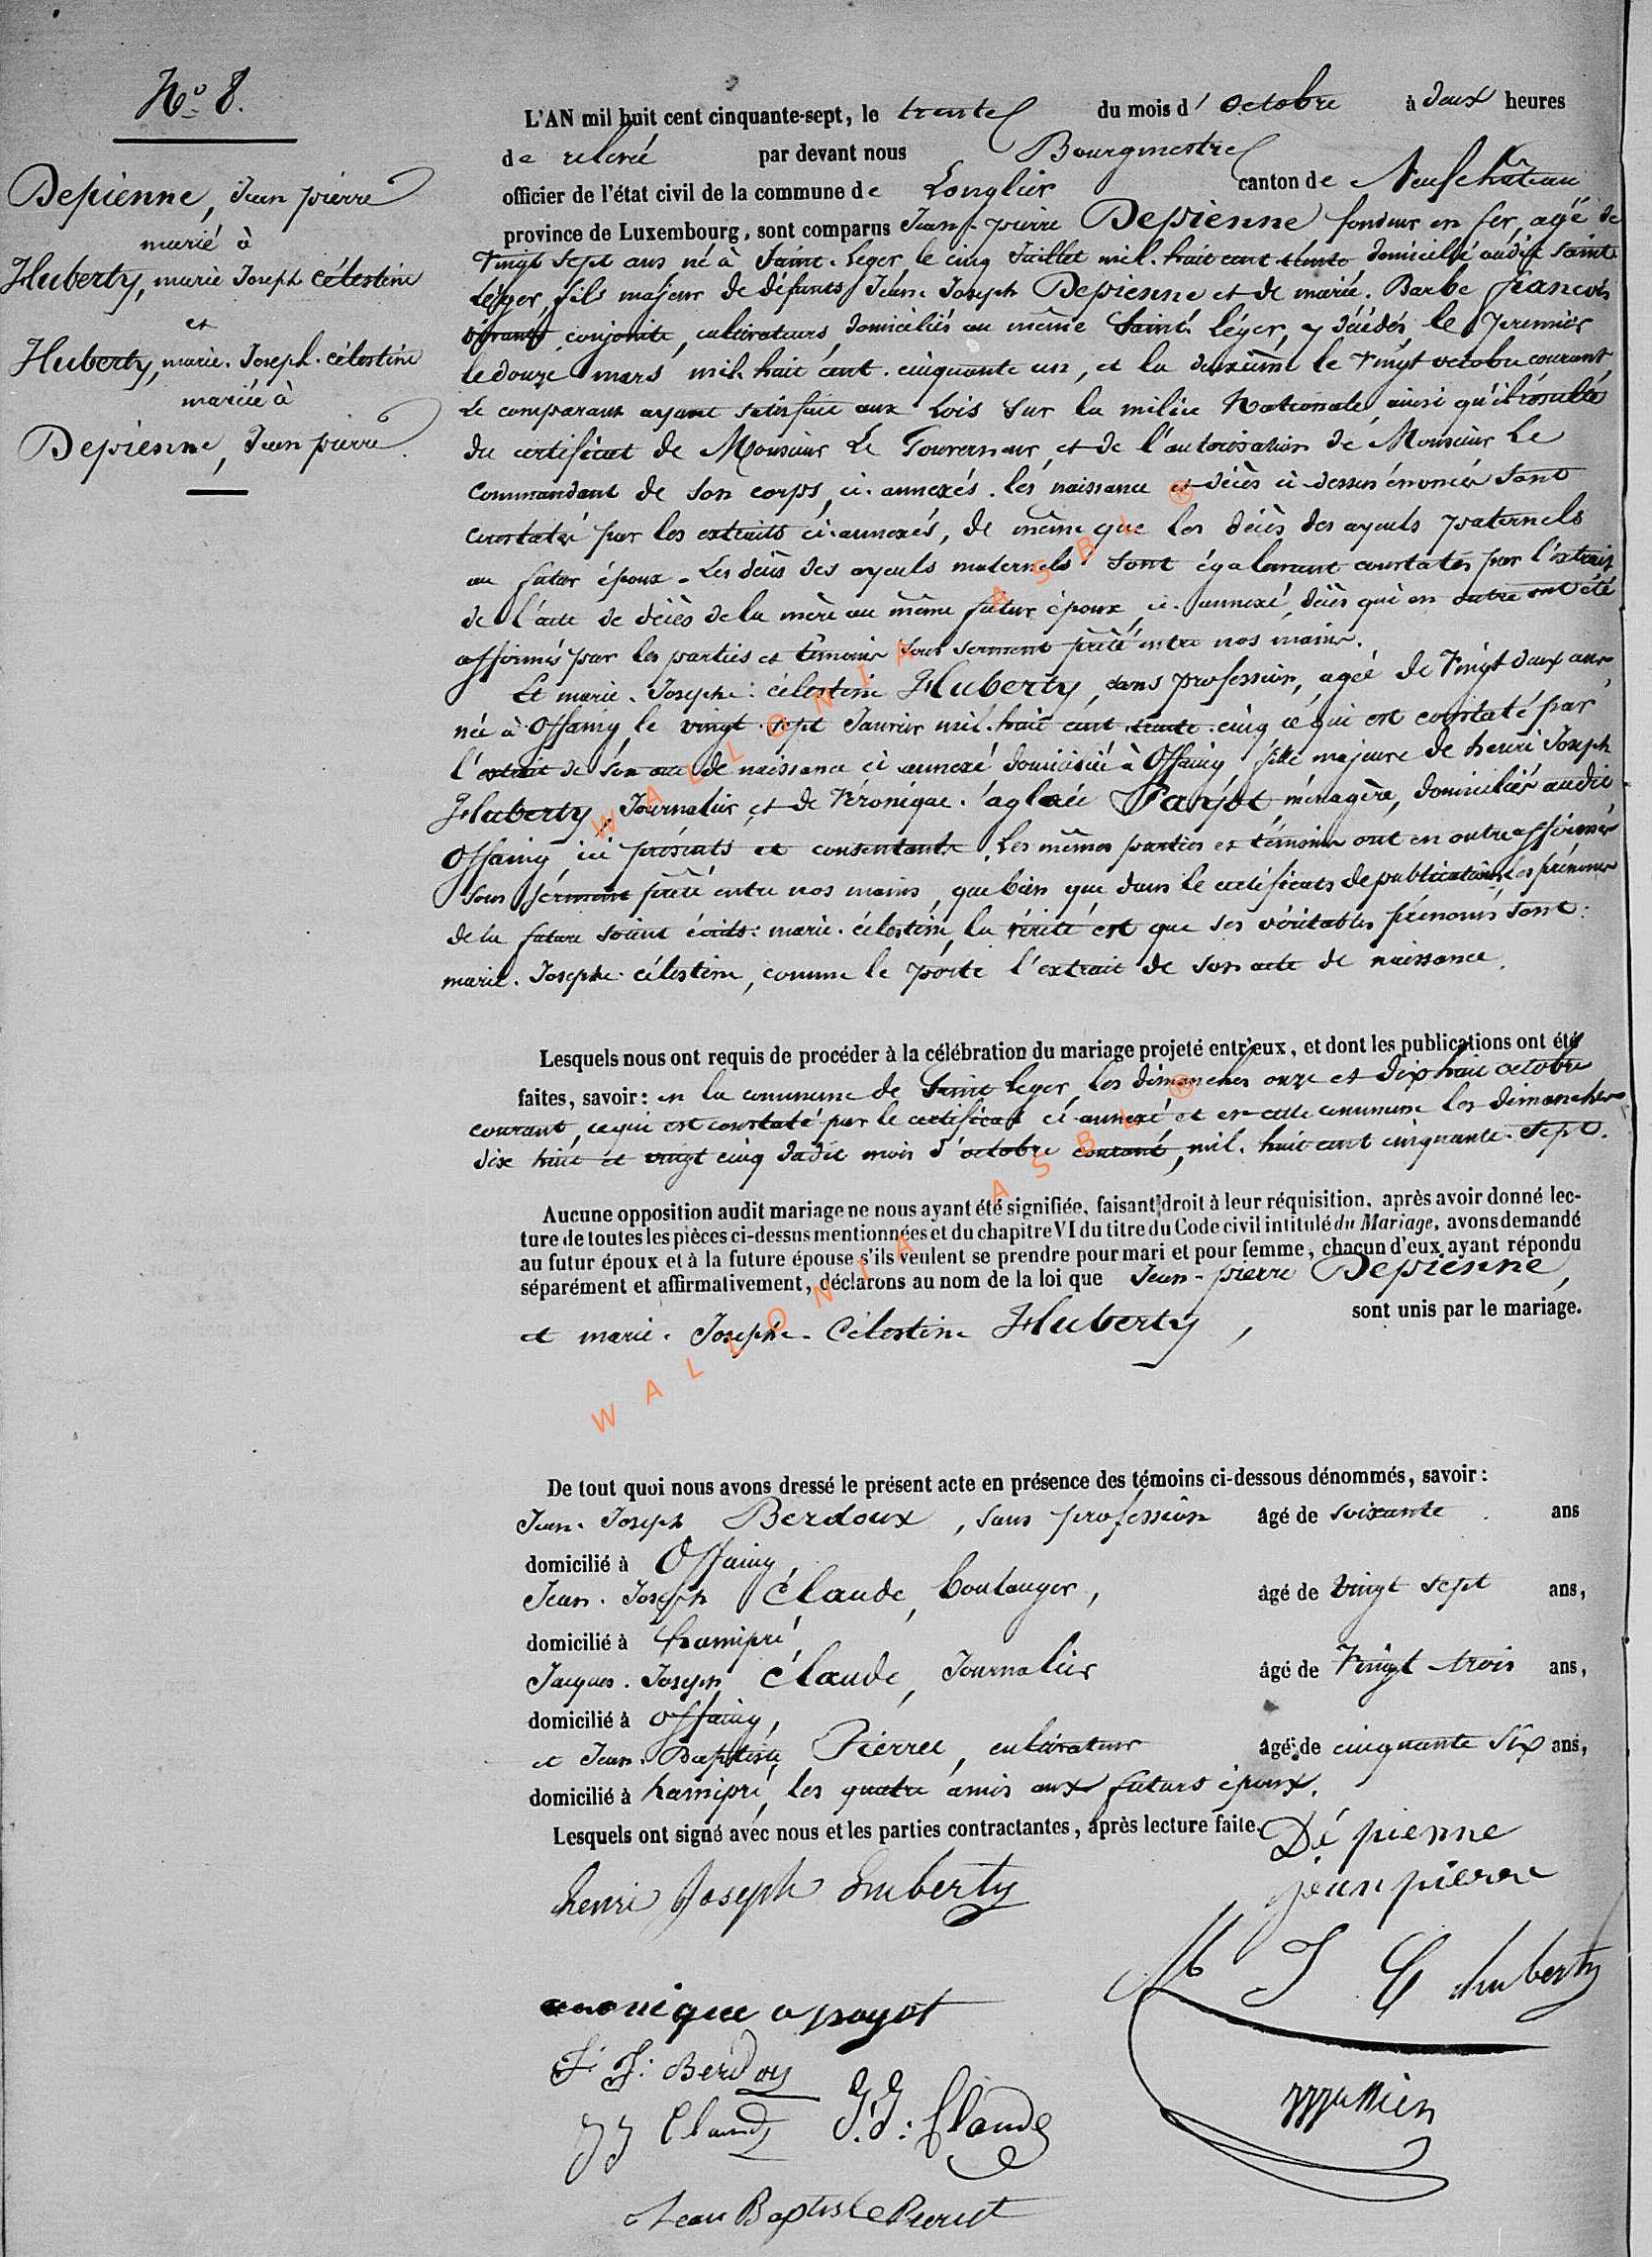 No. 8.
Depienne, Jean pierre
marié à
Huberty, marie Joseph célestine
et
Huberty, marie. Joseph. célestine
mariée à
Depienne, Jean pierre.
L'AN mil huit cent cinquante-sept, le trente du mois d' octobre à deux heures
de relevé par devant nous Bourgmestre
officier de l'état civil de la commune de Longlier canton de Neufchâteau
province de Luxembourg, sont comparus Jean-pierre Depienne fondeur en fer, agé de
Vingt Sept ans né à Saint-Leger le cinq Juillet mil. huit cent trente domicilié audit Saint
Léger, fils majeur de défunts Jean Joseph Depienne et de marie. Barbe francois
vivants conjoints, cultivateurs, domiciliés au même Saint Léger, y décédés, le premier
le douze mars mil. huit cent. cinquante un, et la deuxième le vingt octobre courant,
Le comparant ayant satisfait aux Lois sur la milice Nationale, ainsi qu'il résulte
du certificat de Monsieur Le Gouverneur, et de l'autorisation de Monsieur Le
Commandant de son corps, ci-annexés. les naissance et décès ci-dessus énoncés sont
constatés par les extraits ci-annexés, de même que les décès des ayeuls paternels
au futur époux - Les décès des ayeuls maternels sont également constatés par l'extrait
de l'acte de décès de la mère au même futur époux, ci-annexé, décès qui en outre ont été
affirmés par les parties et témoins sous serment prêté entre nos mains.
Et marie. Josephe. célestine Huberty, sans profession, agée de Vingt deux ans,
née à Offaing le vingt sept Janvier mil. huit cent trente. cinq ce qui est constaté par
l'extrait de son acte de naissance ci annexé domiciliée à Offaing fille majeure de henri Joseph
Huberty, Journalier et de Véronique. aglaée Payot, ménagère, domiciliés audit
Offaing, ici présents et consentants. Les mêmes parties et témoins ont en outre affirmé
sous serment prêté entre nos mains, que bien que dans le certificats de publications les prénoms
de la future soient écrits: marie. célestine, la vérité est que ses véritables prénoms sont:
marie. Josephe. célestine, comme le porte l'extrait de son acte de naissance.
Lesquels nous ont requis de procéder à la célébration du mariage projeté entr'eux, et dont les publications ont été
faites, savoir: en la commune de Saint Leger, les dimanches onze et dix huit octobre
courant, ce qui est constaté par le certificat ci-annexé et en cette commune les dimanches
dix huit et vingt cinq dudit mois d'octobre courant, mil. huit cent cinquante. Sept.
Aucune opposition audit mariage ne nous ayant été signifiée, faisant droit à leur réquisition, après avoir donné lec-
ture de toutes les pièces ci-dessus mentionnées et du chapitre VI du titre du Code civil intitulé du Mariage, avons demandé
au futur époux et à la future épouse s'ils veulent se prendre pour mari et pour femme, chacun d'eux ayant répondu
séparément et affirmativement, déclarons au nom de la loi que Jean-pierre Depienne,
et marie. Josephe. Célestine Huberty, sont unis par le mariage.
De tout quoi nous avons dressé le présent acte en présence des témoins ci-dessous dénommés, savoir:
Jean. Joseph Berdoux, sans profession âgé de soixante ans
domicilié à Offaing,
Jean. Joseph Claude, boulanger, âgé de vingt sept ans,
domicilié à hamipré,
Jacques. Joseph Claude, Journalier âgé de Vingt trois ans,
domicilié à Offaing,
et Jean. Baptiste Pierret, cultivateur âgé de cinquante Six ans,
domicilié à hamipré, les quatre amis aux futurs époux.
Lesquels ont signé avec nous et les parties contractantes, après lecture faite.
Dépienne
jean pierre
henri Joseph huberty
M J C huberty
payot
J. J. Berdou
J J Claude J. J: Claude
Jean Baptiste Pierret
WALLONIA ASBL ®
WALLONIA ASBL ®